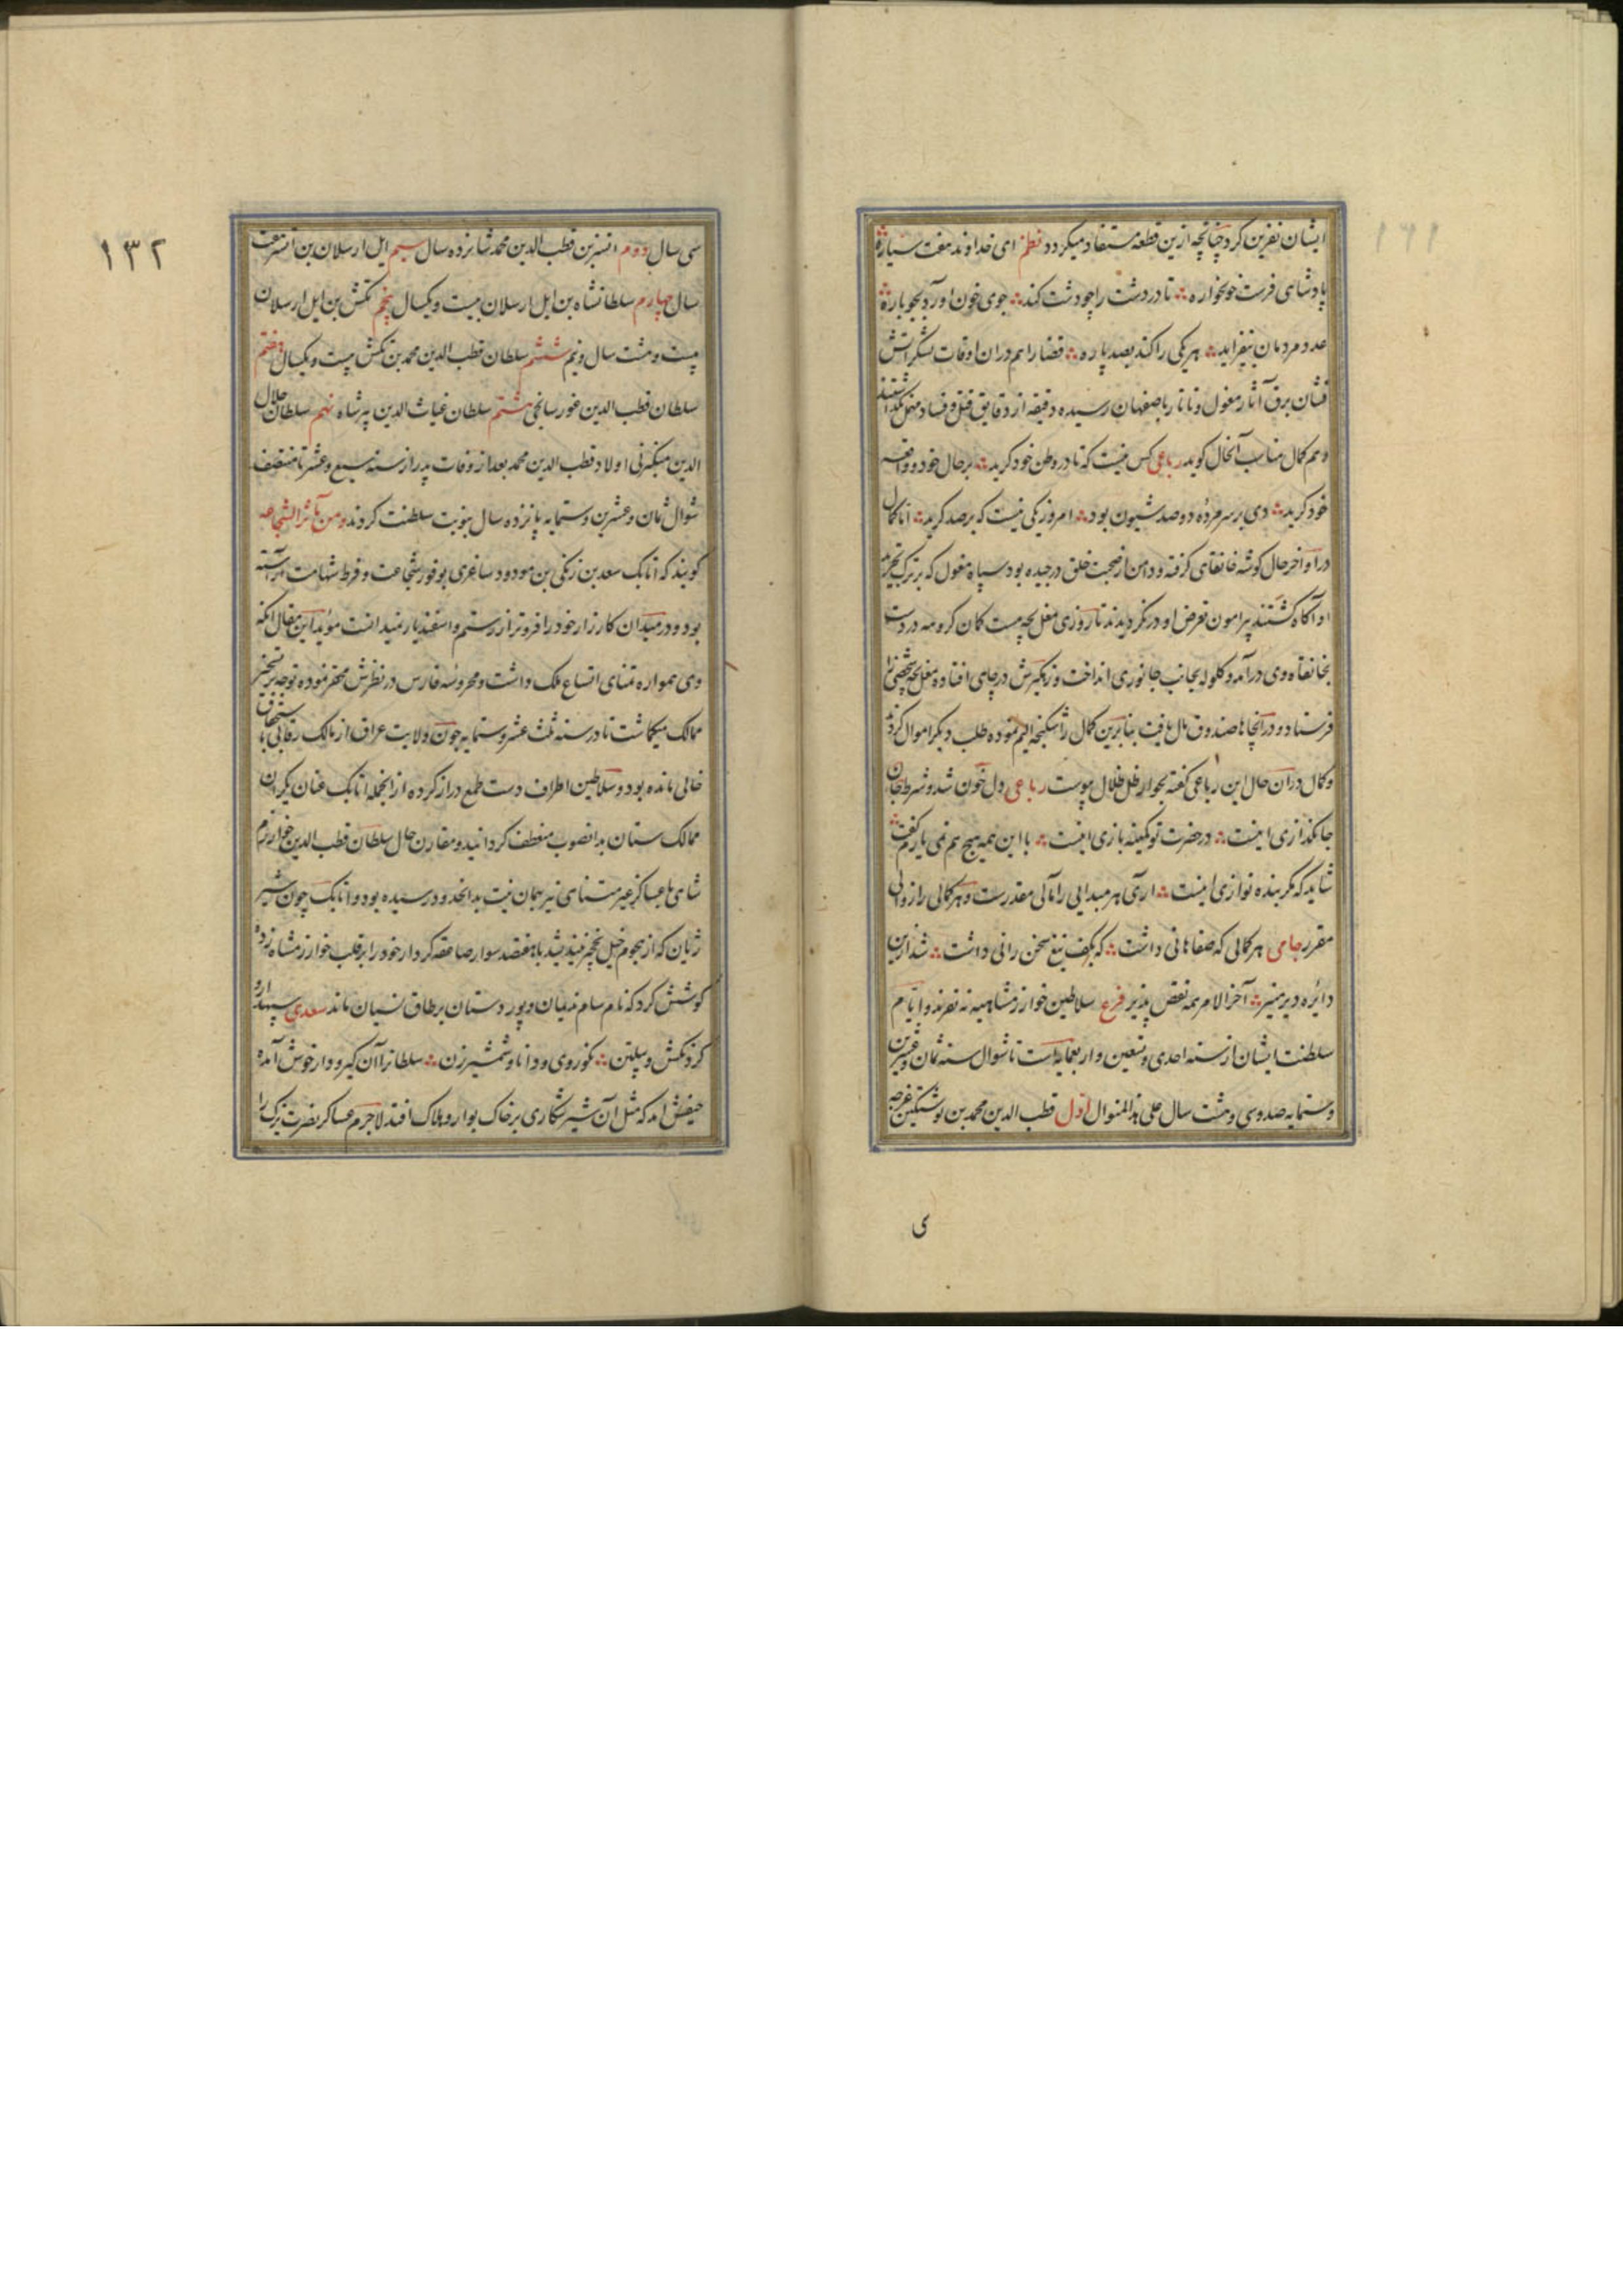 ایشان نفرین کرد چنانچه ازین قطعه مستفاد میکردد نظم ای خداوند هفت سیاره
پادشاهی فرست خونخواره تا در دشت را چو دشت کند جوی خون آورد بجوباره
عدد مردمان بیفزاید هر یکی را کند بصد پاره قضا را هم دران اوقات لشکر آتش
فشان برق آثار مغول و تاتار باصفهان رسیده دقیقه از دقایق قتل و فساد مهمل نکذاشتند
و هم کمال مناسب آنحال کوید رباعی کس نیست که تا در وطن خود کرید بر حال خود و واقعه
خود کرید دی بر سر مرده دو صد شیون بود امروز یکی نیست که بر صد کرید اما کمال
در اواخر حال کوشه خانقاهی کرفته و دامن از صحبت خلق درچیده بود سپاه مغول که بر ترک تجرید
او آکاه کشتند پیرامون تعرض او در نکردیدند تا روزی مغل بچه مست کمان کروهه در دست
بخانقاه وی درآمد و کلوله بجانب جانوری انداخت و زهکیرش در چاهی افتاده مغل بچه شخصی را
فرستاد و در آنجاها صندوق مال یافت بنابرین کمال را شکنجه الیم نموده طلب دیکر اموال کردند
و کمال دران حال این رباعی کفته بجوار ظل ظلال پیوست رباعی دل خون شد و شرط جان
جانکدازی اینست در حضرت تو کمینه بازی اینست با این همه هیچ هم نمی یارم کفت
شاید که مکر بنده نوازی اینست آری هر مبدایی را مآلی مقدرست و هر کمالی را زوالی
مقرر جامی هر کمالی که صفاهانی داشت که بکف تیغ سخن رانی داشت شد ازین
دائره دیر مسیر آخر الامر همه نقص پذیر فرع سلاطین خوارزمشاهیه نه نفرند و ایام
سلطنت ایشان از سنه احدی و تسعین و اربعمایه است تا شوال سنه ثمان و عشرین
و ستمایه صد و سی و هشت سال علی هذا المنوال اول قطب الدین محمد بن نوشتکین غرجه
ی
۱۳۲
سی سال دوم اتسز بن قطب الدین محمد شانزده سال سیم ایل ارسلان بن اتسز هفت
سال چهارم سلطانشاه بن ایل ارسلان بیست و یکسال پنجم تکش بن ایل ارسلان
بیست و هشت سال و نیم ششم سلطان قطب الدین محمد بن تکش بیست و یکسال هفتم
سلطان قطب الدین غورسانجی هشتم سلطان غیاث الدین پیرشاه نهم سلطان جلال
الدین منکبرنی اولاد قطب الدین محمد بعد از وفات پدر از سنه سبع و عشر تا منتصف
شوال ثمان و عشرین و ستمایه پانزده سال بنوبت سلطنت کردند و من مآثر الشجاعه
کویند که اتابک سعد بن زنکی بن مودود سلغری بوفور شجاعت و فرط شهامت آراسته
بود و در میدان کارزار خود را فزونتر از رستم و اسفندیار میدانست مؤید این مقال آنکه
وی همواره تمنای اتساع ملک داشت و محروسه فارس در نظرش محقر نموده توجه بر تسخیر
ممالک میکماشت تا در سنه ثلث عشر و ستمایه چون ولایت عراق از مالک رقابی باستحقاق
خالی مانده بود و سلاطین اطراف دست طمع دراز کرده از انجمله اتابک عنان یکران
ممالک ستان بدانصوب منعطف کردانید و مقارن حال سلطان قطب الدین خوارزم
شاهی با عساکر غیر متناهی نیز بهمان نیت بدانحدود رسیده بود و اتابک چون شیر
ژیان که از هجوم خیل نخجیر نیندیشد با هفتصد سوار صاعقه کردار خود را بر قلب خوارزمشاه زد و
کوشش کرد که نام سام نریمان و پور دستان بر طاق نسیان ماند سعدی سپهدار و
کردنکش و پیلتن نکوروی و دانا و شمشیرزن سلطان را آن کیر و دار خوش آمده
حیفش آمد که مثل آن شیر شکاری بر خاک بوار و هلاک افتد لاجرم عساکر نصرت بزک را